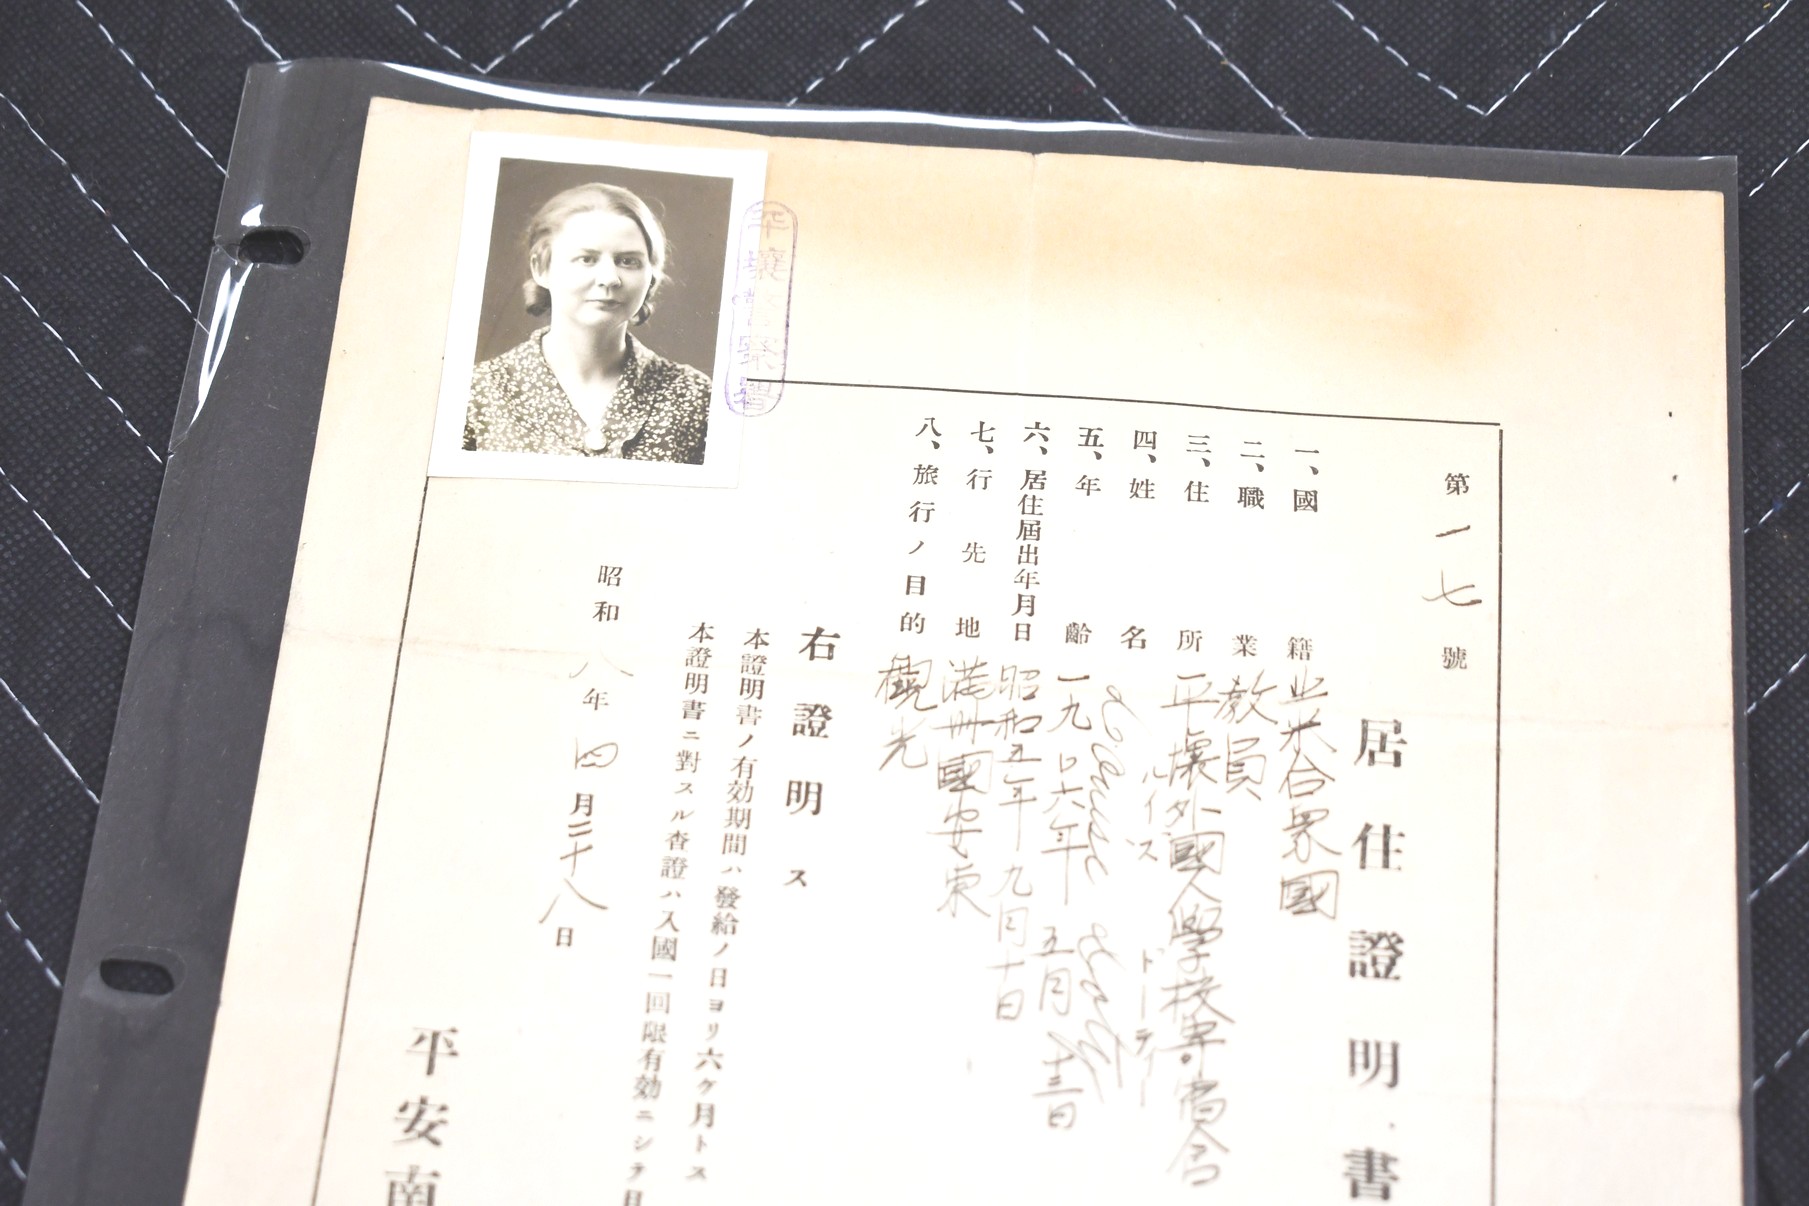 第一七號
居住證明書
一、國籍 北米合衆國
二、職業 教員
三、住所 平壤外國人學校寄宿舍
四、姓名 ルイズ
Louise
五、年齡 一九〇六年 五月十三日
六、居住屆出年月日 昭和五年九月十日
七、行先地 滿洲國安東
八、旅行ノ目的 觀光
右證明ス
本證明書ノ有効期間ハ發給ノ日ヨリ六ケ月トス
本證明書ニ對スル査證ハ入國一回限有効ニシテ日
昭和八年四月二十八日
平安南
平壤警察署